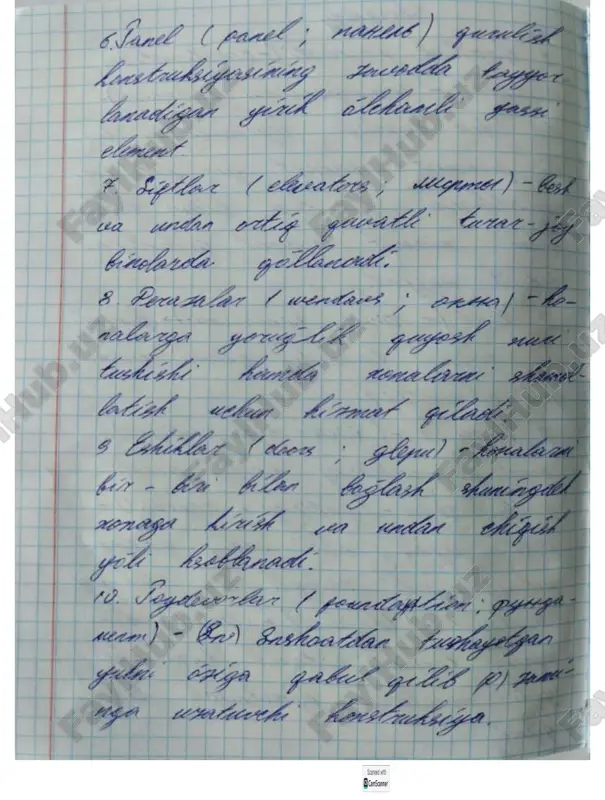 6. Panel ( panel ; панель) qurulish
konstruksiyasining zavodda tayyor
lanadigan yirik ölchamli yassi
element.
7. Liftlar ( elevators ; лифты) - besh
va undan ortiq qavatli turar-joy
binolarda qöllanadi.
8. Perazalar ( wendows ; окна) - ho-
nalarga yorug'lik quyosh nuri
tushishi hamda xonalarni shamol-
latish uchun hizmat qiladi
9 Eshiklar ( doors ; двери) - honalarni
bir - biri bilan bog'lash shuningdek
xonaga kirish va undan chiqish
yöli hsoblanadi.
10. Poydevorlar ( foundaption ; фунда-
мент) - Inshoatdan tushayotgan
yukni öziga qabul qilib zami-
nga uzatuvchi konstruksiya.
FayllHub.uz
Scanned with
CamScanner